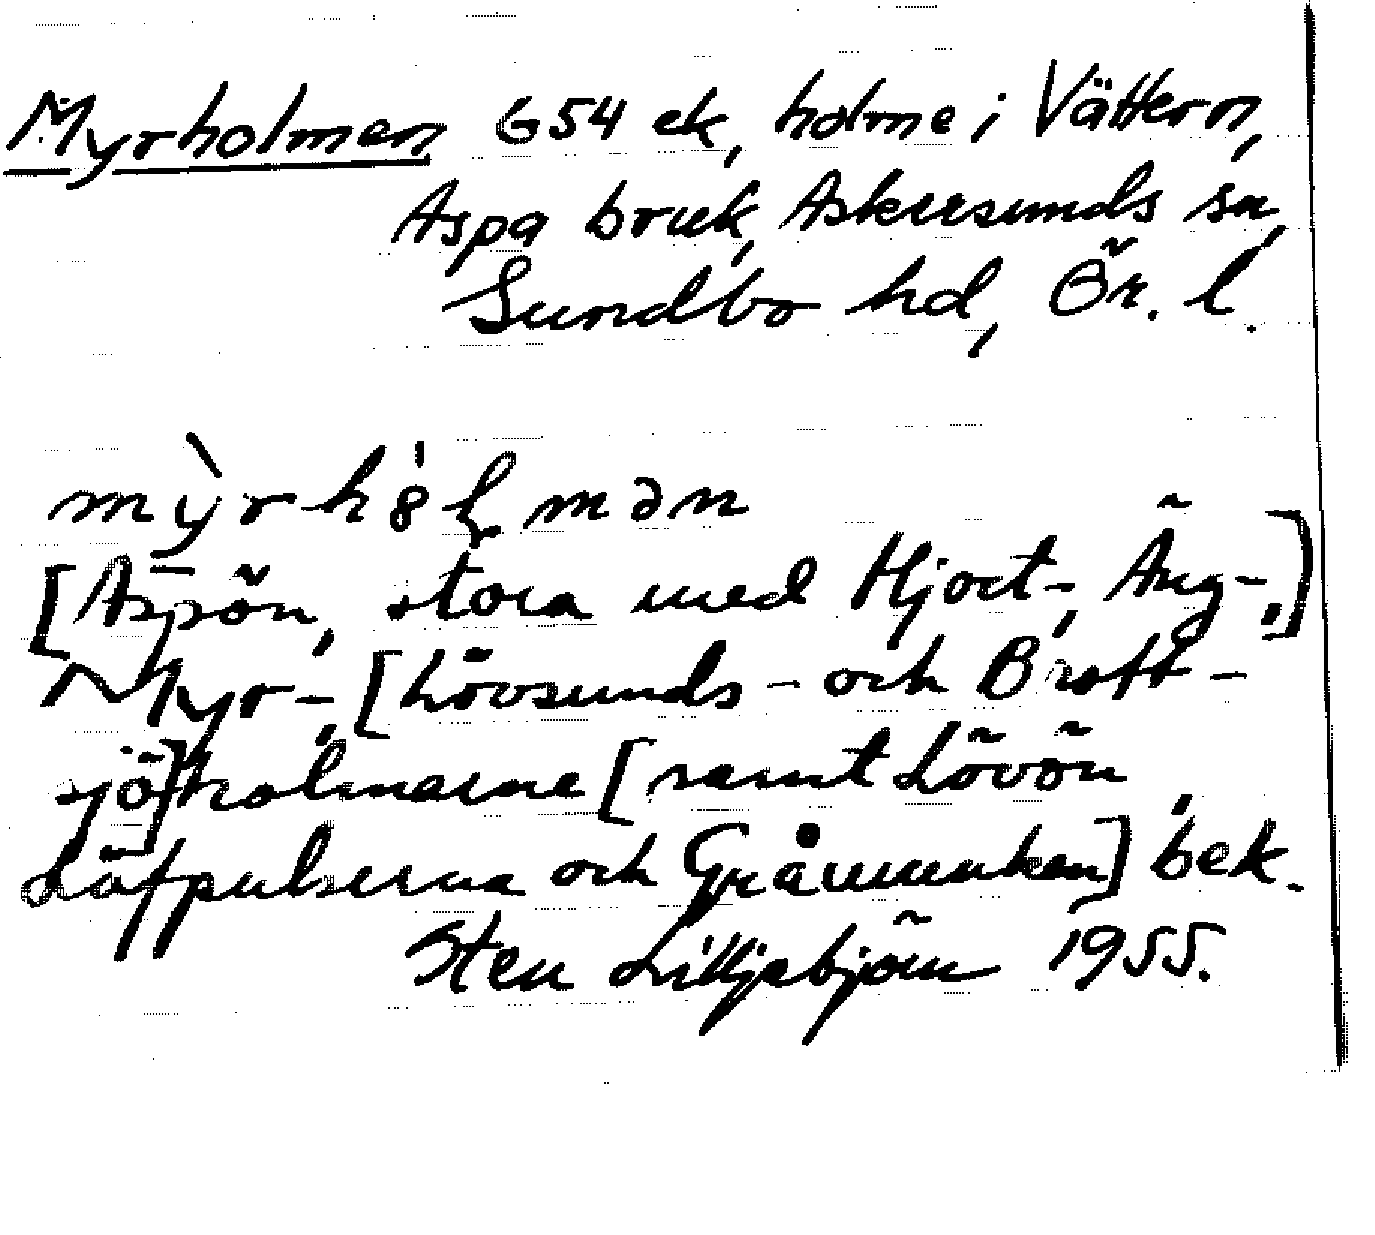 Myrholmen G54 ek, holme i Vättern,
Aspa bruk, Askersunds sn,
Sundbo hd, Ör. l.
[Aspön, stora med Hjort-, Äng-,]
Myr-, [Lövsunds- och Brott-
sjö]holmarne [samt Lövön,
och Gråmunken] bek.
Sten Lilljebjörn 1955.